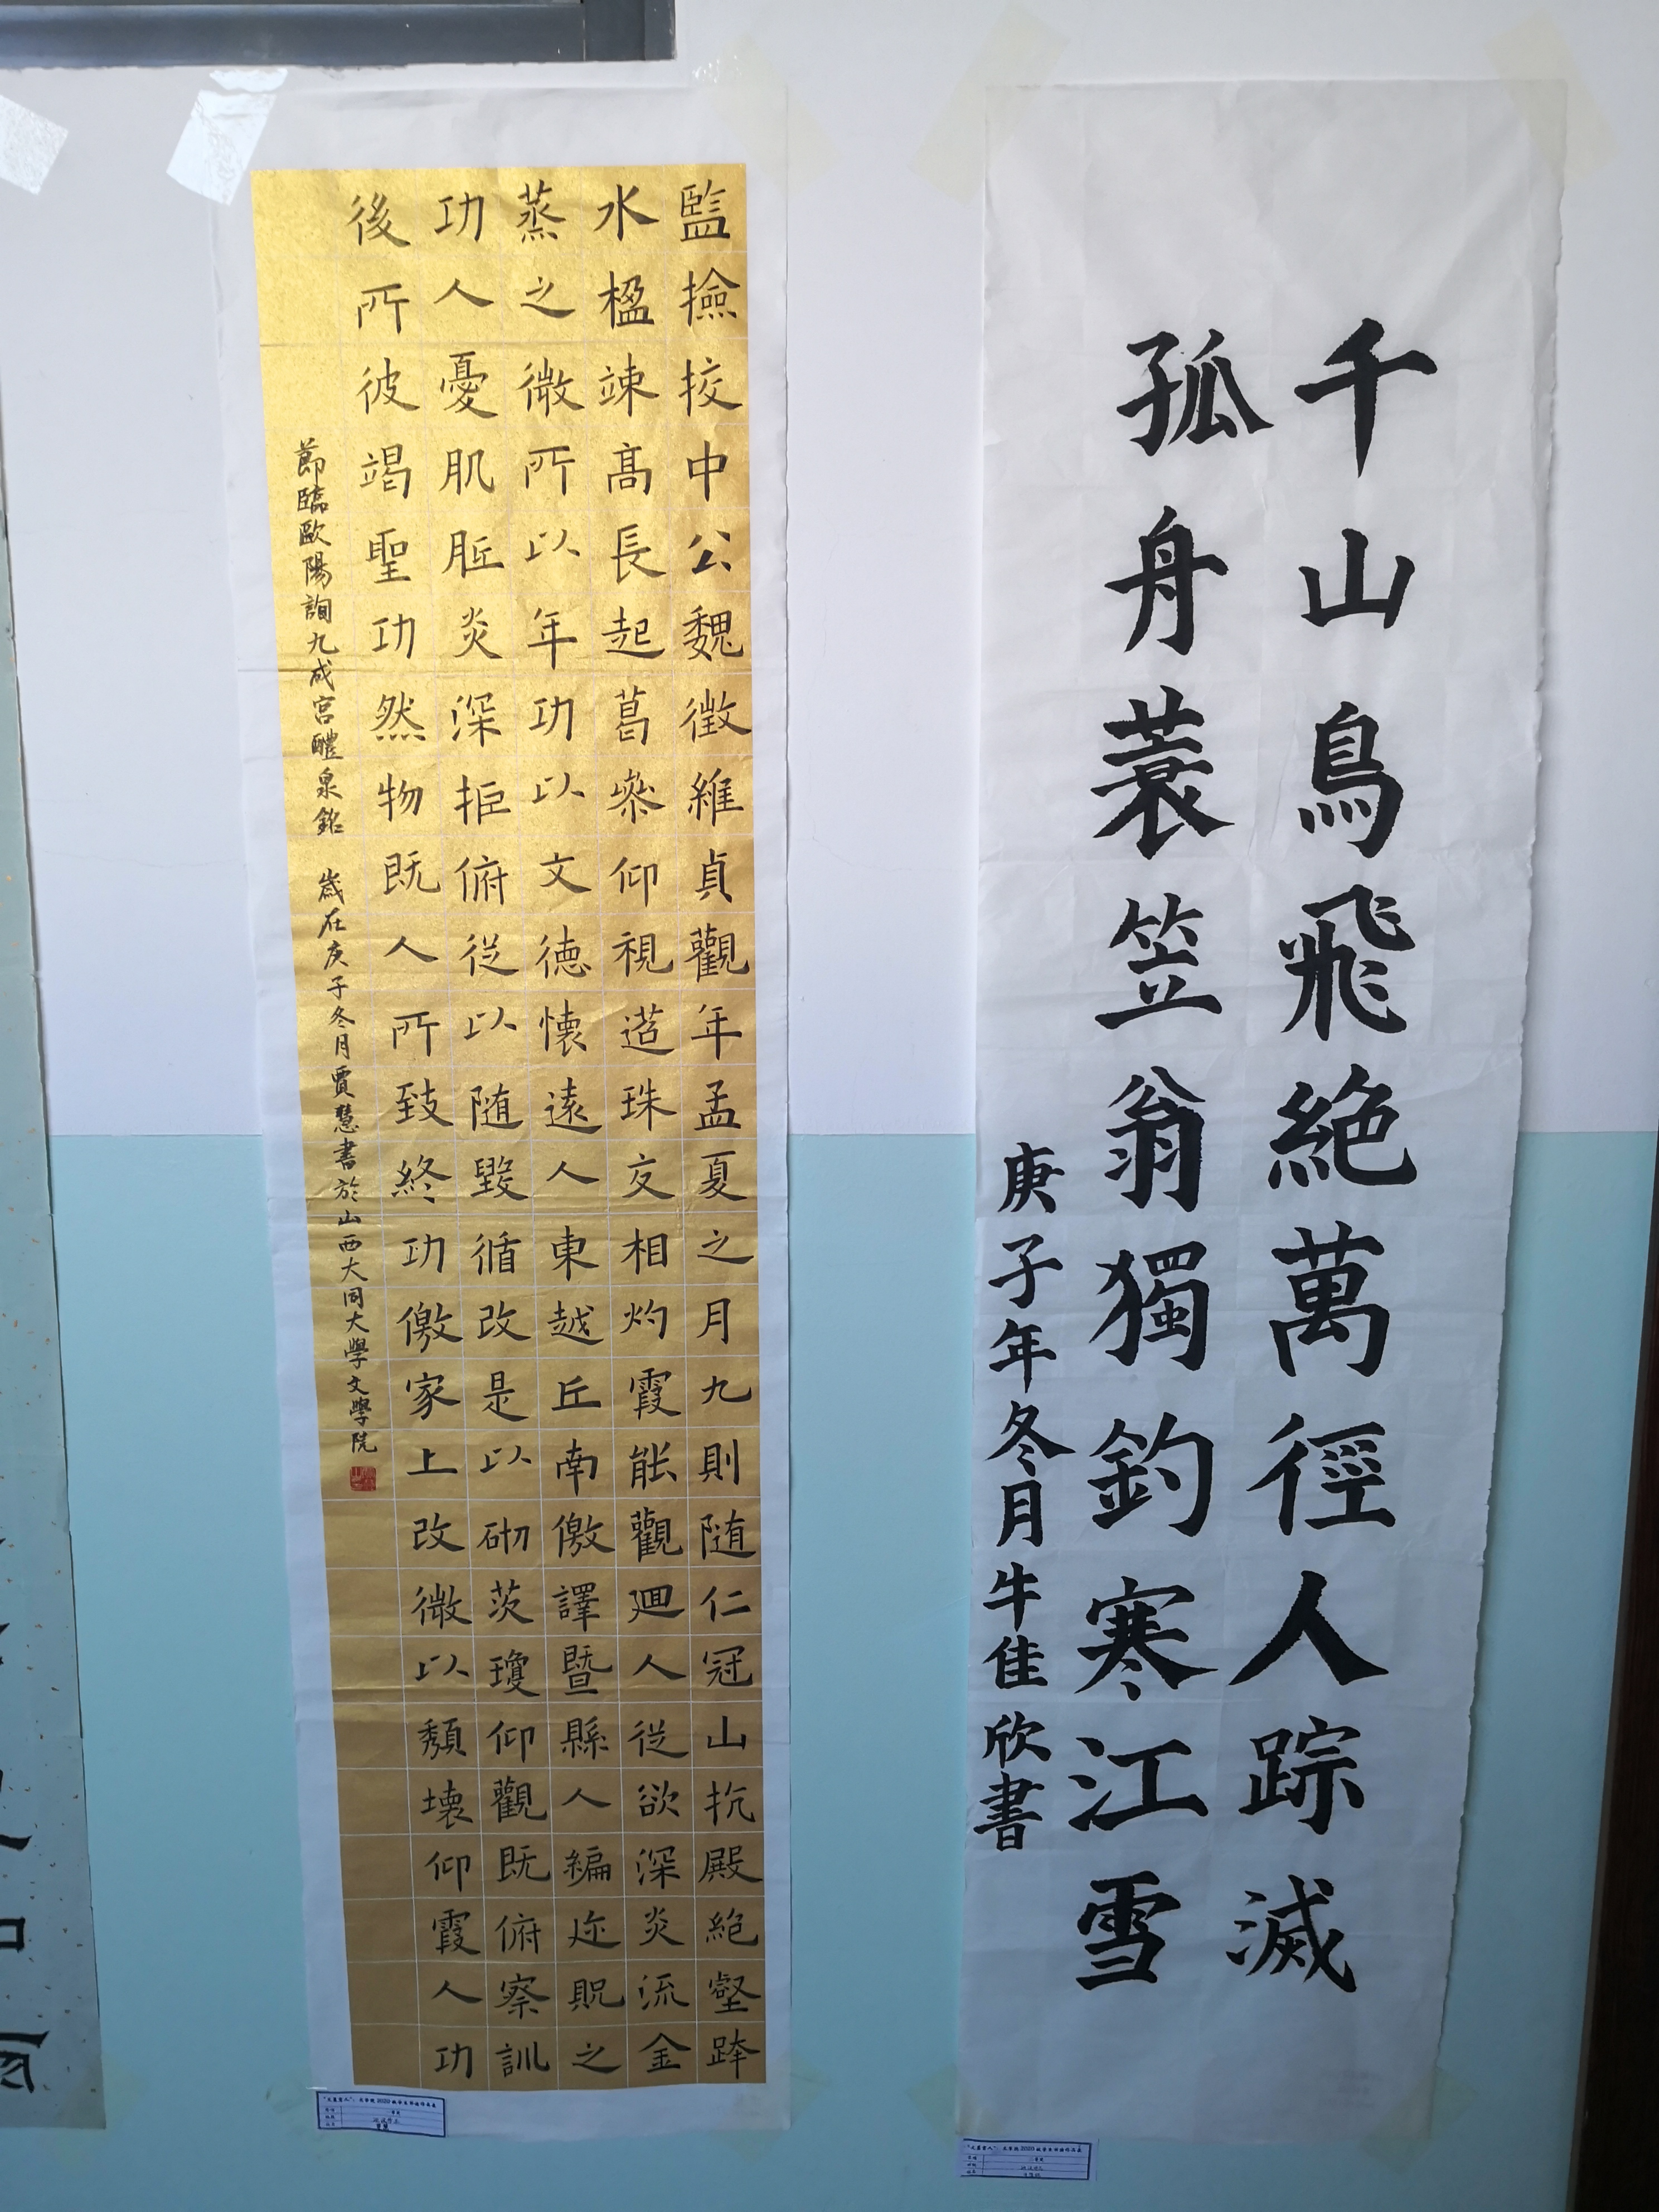 千山鳥飛絶萬徑人踪滅
孤舟蓑笠翁獨釣寒江雪
庚子年冬月牛佳欣書
監撿挍中公魏徵維貞觀年孟夏之月九則随仁冠山抗殿絶壑跨
水楹竦髙長起葛叅仰視遥珠交相灼霞能觀迴人従欲深炎流金
蒸之微所以年功以文徳懐遠人東越丘南儌譯暨縣人編迩貺之
功人憂肌胝炎深拒俯従以随毀循改是以砌茨瓊仰觀既俯察訓
後所彼竭聖功然物既人所致終功儌家上改微以頽壊仰霞人功
節臨歐陽詢九成宮醴泉銘 歲在庚子冬月賈慧書於山西大同大學文學院